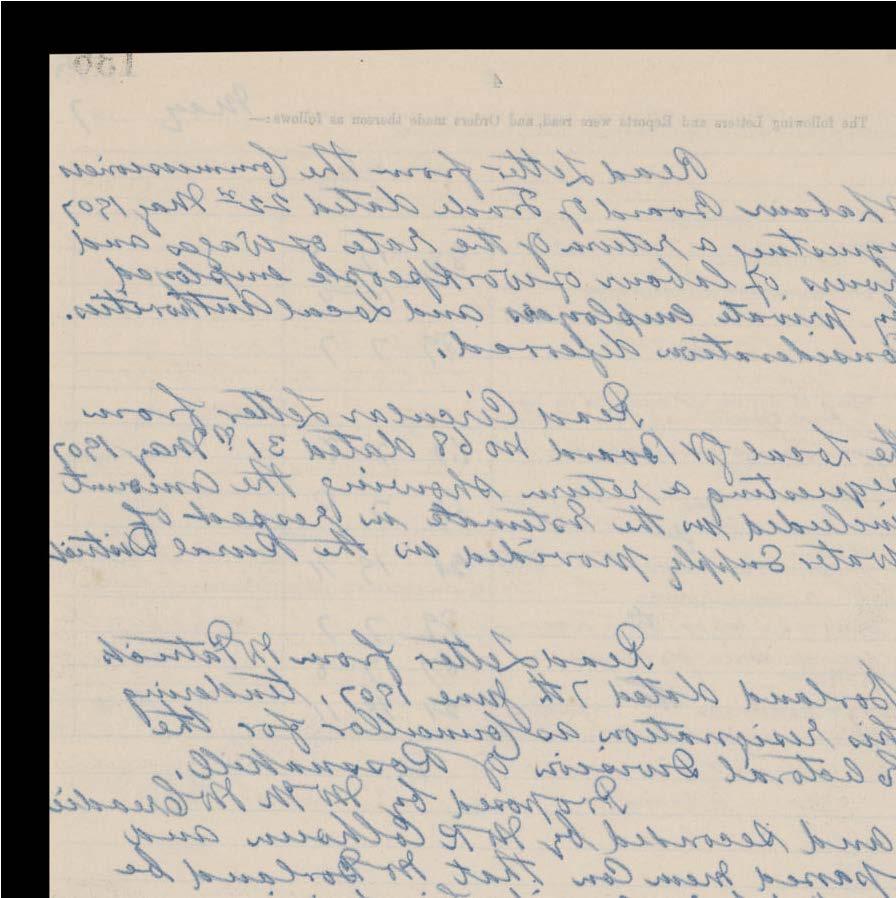 150
4
May 7
The following Letters and Reports were read, and Orders made thereon as follows:—
Read Letter from the Commissioners
Labour Board of Trade dated 22nd May 1907
questing a return of the Rates of Wages and
ours of labour of workpeople employed
by private employers and Local Authorities.
onsideration deferred.
Read Circular Letter from
he Local Gt Board No 68 dated 31st May 1907
equesting a return showing the amount
ncluded in the Estimate in respect of
water Supply provided in the Rural District
Read Letter from Mr Patrick
Borland dated 7th June 1907, tendering
his resignation as Councillor for the
Electoral Division of Rosnakill.
Proposed by Mr M McCreadie
and seconded by Mr R Colhoun and
passed nem con that Mr Borland be